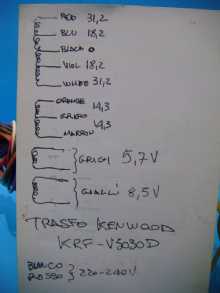 RED 31,2
BLU 18,2
BLACK 0
VIOL 18,2
WHITE 31,2
ORANGE 14,3
GRIGIO
MARRON 14,3
GRIGI 5,7V
GIALLI 8,5V
TRASFO KENWOOD
KRF-V5030D
BIANCO
ROSSO 220-240V